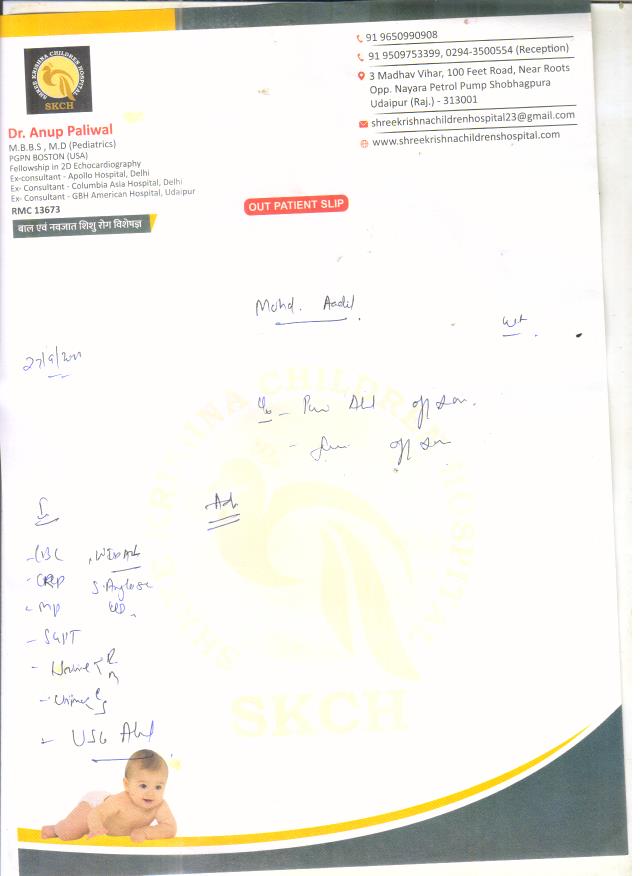 SHREE KRISHNA CHILDREN HOSPITAL
SKCH
Dr. Anup Paliwal
M.B.B.S , M.D (Pediatrics)
PGPN BOSTON (USA)
Fellowship in 2D Echocardiography
Ex-consultant - Apollo Hospital, Delhi
Ex- Consultant - Columbia Asia Hospital, Delhi
Ex- Consultant - GBH American Hospital, Udaipur
RMC 13673
बाल एवं नवजात शिशु रोग विशेषज्ञ
91 9650990908
91 9509753399, 0294-3500554 (Reception)
3 Madhav Vihar, 100 Feet Road, Near Roots
Opp. Nayara Petrol Pump Shobhagpura
Udaipur (Raj.) - 313001
shreekrishnachildrenhospital23@gmail.com
www.shreekrishnachildrenshospital.com
OUT PATIENT SLIP
Mohd. Aadil
Adv
- CBC , WIDAL
- CRP S. Amylase
- MP
- SGPT
- Urine R
M
- Urine C
S
- USG Abd
SHREE KRISHNA CHILDREN HOSPITAL
SKCH